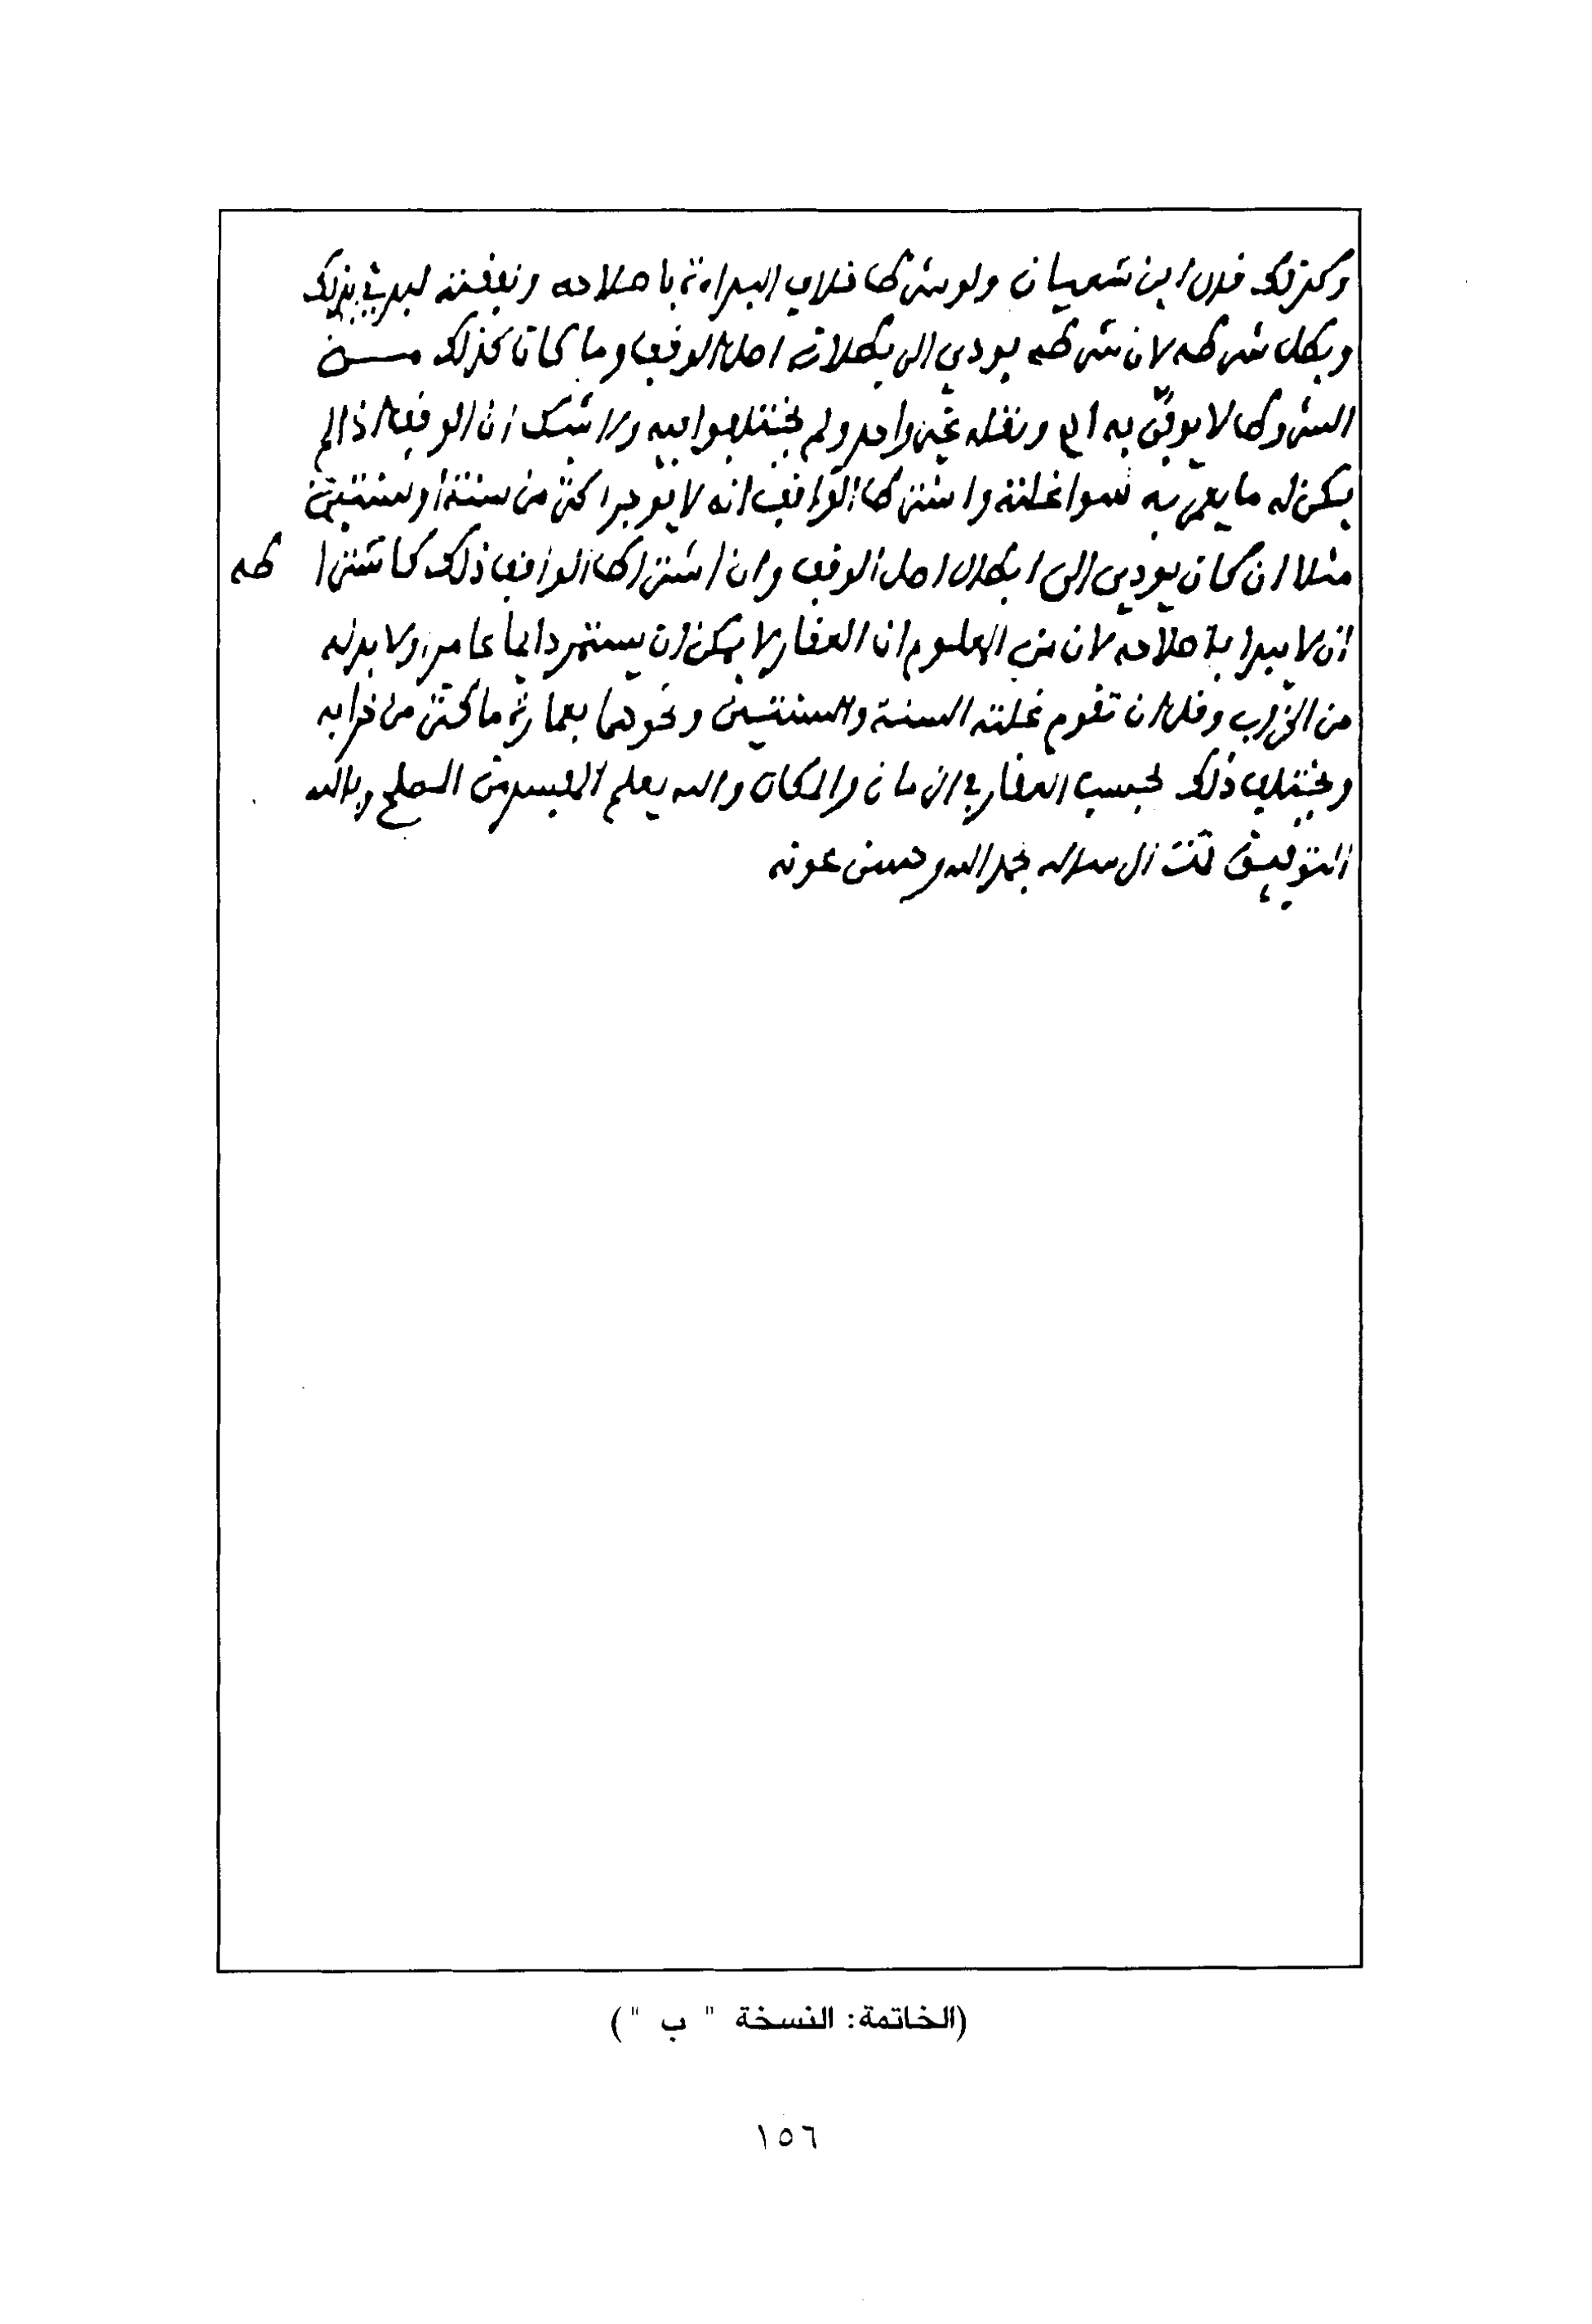 وكذلك قال ابن شعبان ولو شرط خلاف البداءة باصلاحه ونفقته لبدئ بذلك
وبطل شرطه لان شرطه يودي الى بطلانه اصل الوقف وما كان كذلك مــن
الشروط لا يوفى به اه ونقله غير واحد ولم يختلفوا فيه ولا شك ان الوقف اذا لم
يكن له ما يعمر به سوا غلته واشترط الواقف انه لا يوجر اكثر من سنة او سنتين
مثلا ان كان يودي الى ابطال اصل الوقف وان اشتراط الواقف ذلك كاشترا طه
ان لا يبدا باصلاحه لان من المعلوم ان العقار لا يمكن ان يستمر دايما عامرا ولا بد له
من الخراب وقل ان تقوم غلته السنة والسنتين ونحوهما بعمارة ما كثر من خرابه
ويختلف ذلك بحسب العقار في الزمان والمكان والله يعلم المفسد من المصلح وبالله
التوفيق تمت الرسالة بحمد الله وحسن عونه
(الخاتمة: النسخة " ب ")
١٥٦